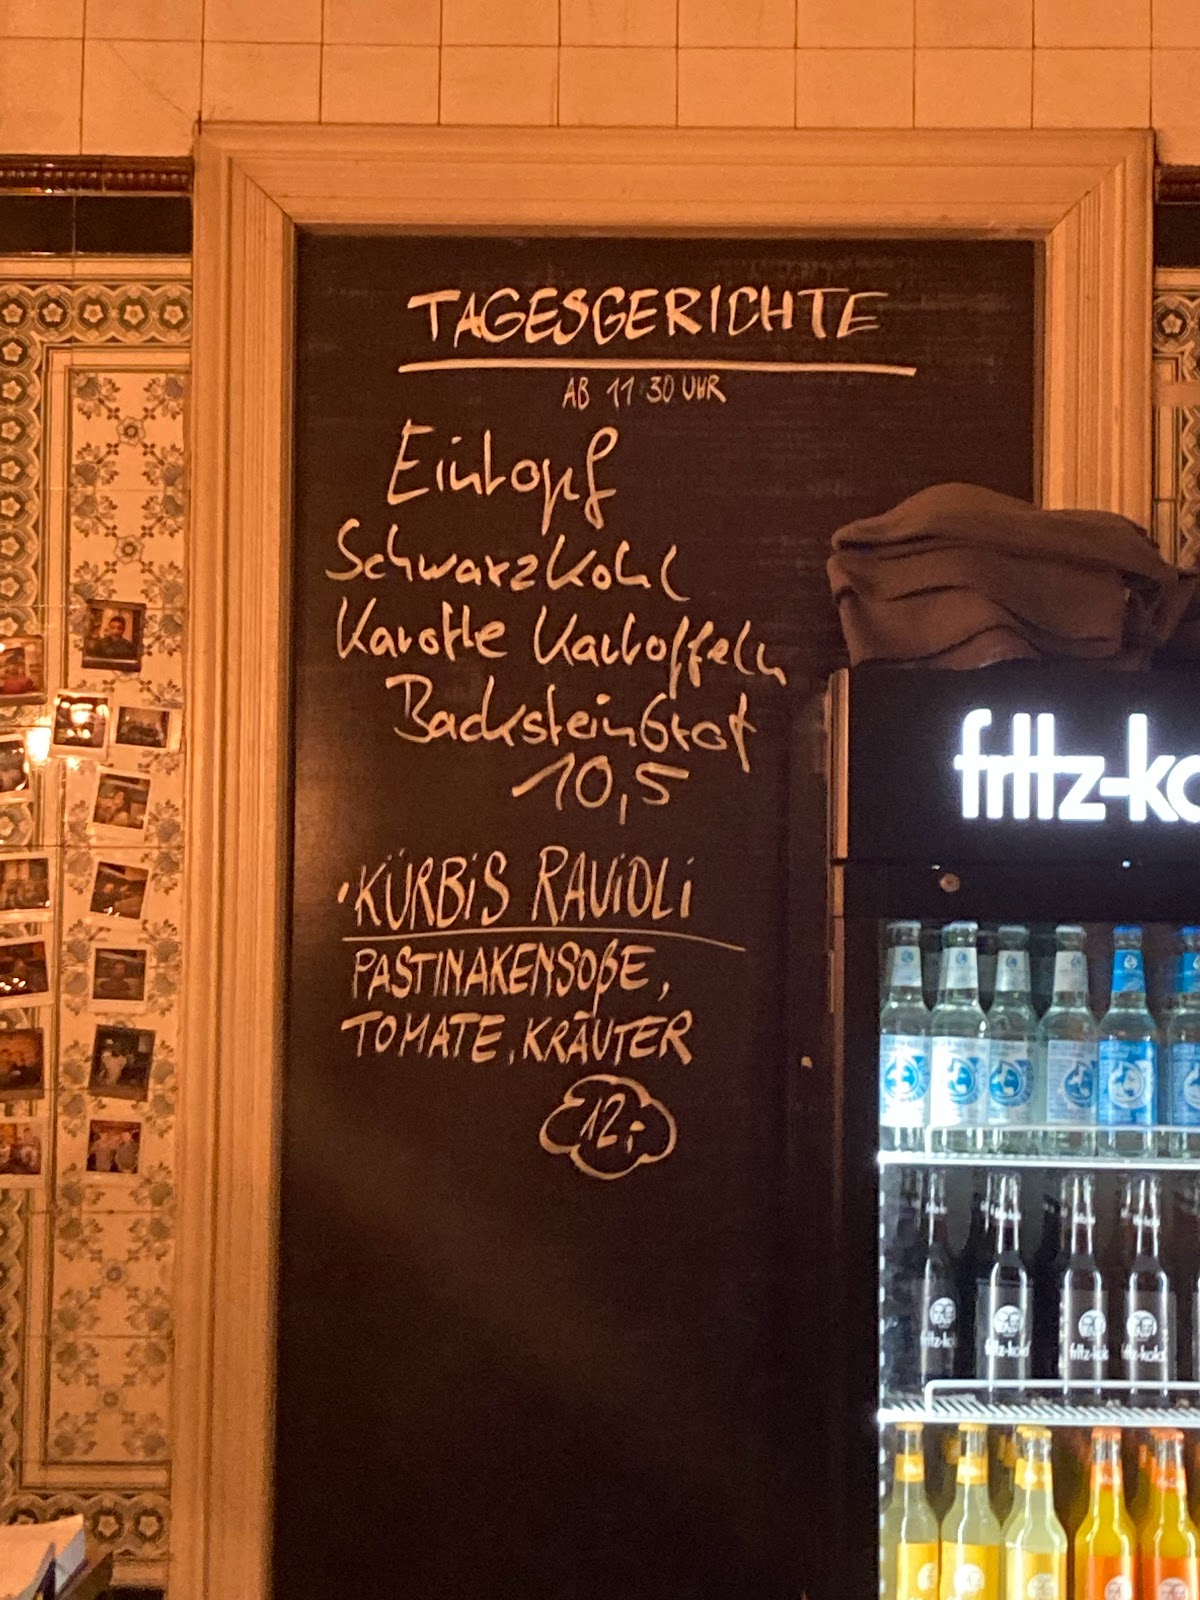 TAGESGERICHTE
AB 11:30 UHR
Eintopf
Schwarzkohl
Karotte Kartoffeln
Backsteinbrot
10,5
· KÜRBIS RAVIOLI
PASTINAKENSOßE,
TOMATE, KRÄUTER
12,-
fritz-ko
fritz-kola
fritz-kola
fritz-kola